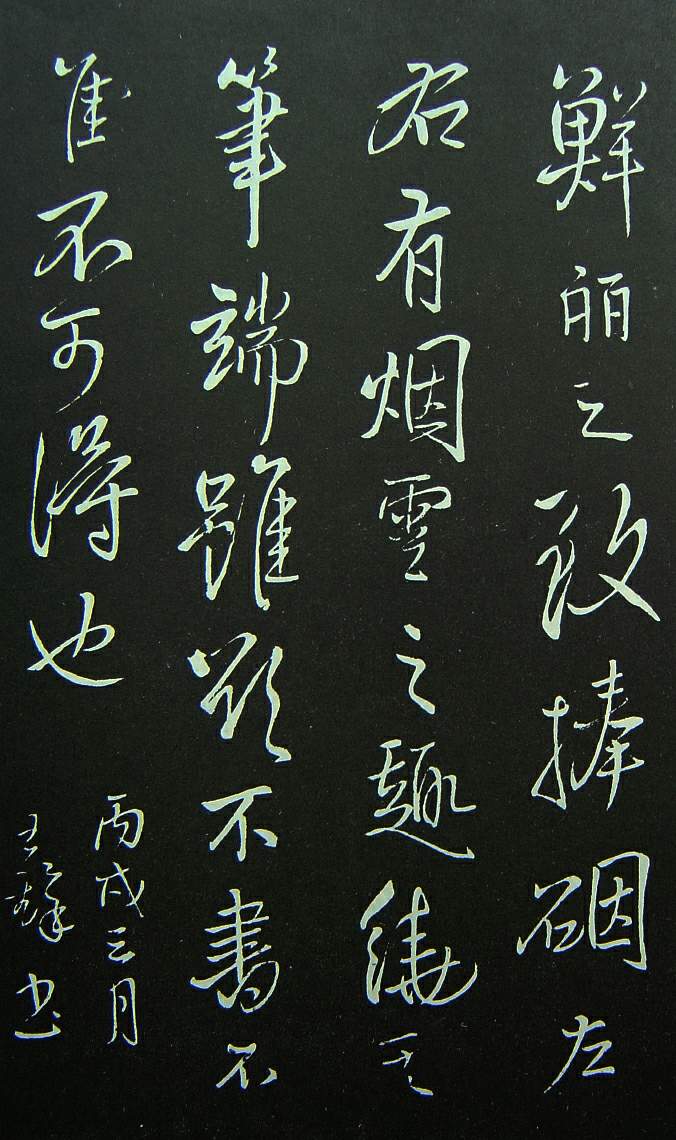 鮮丽之致捧左
右有烟雲之趣繞其
筆端雖欲不書不
佳不可得也
丙戌三月
王书